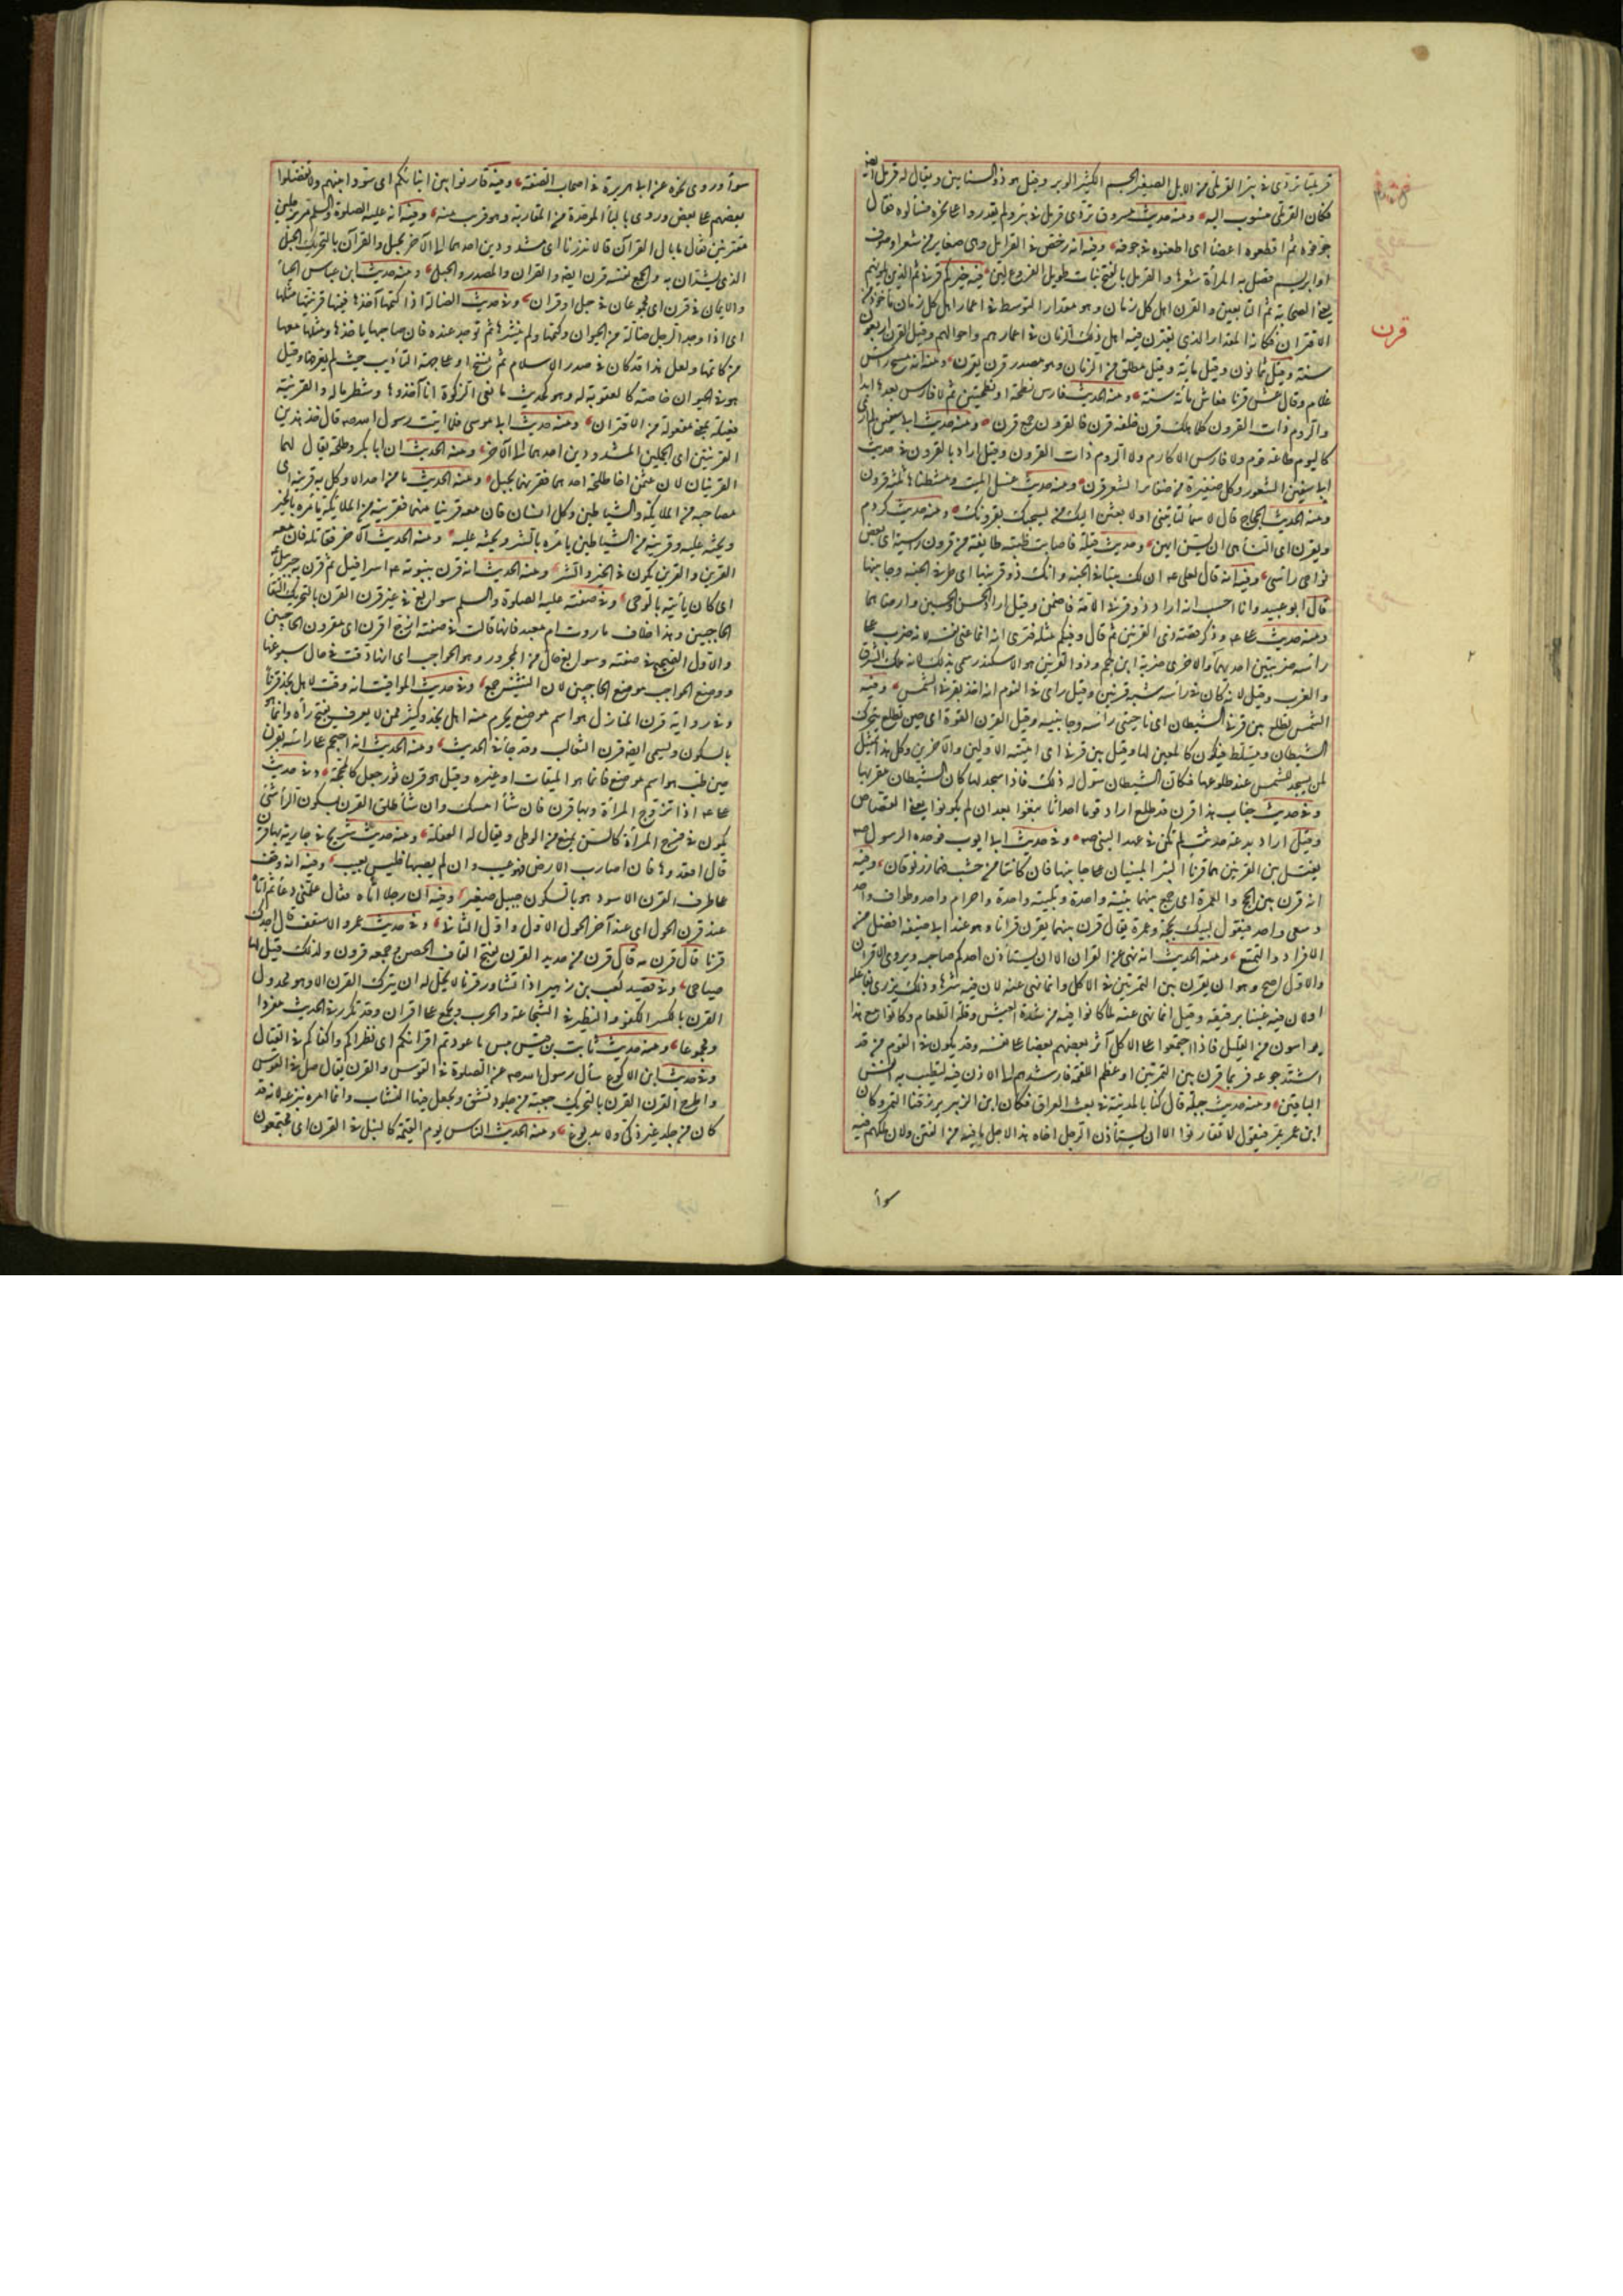 قرمليا تردى في بئر القرملي من الابل الصغير الجسم الكثير الوبر وقيل هو ذو السنامين ويقال له قرمل ايضا
فكان القرملي منسوب اليه ومنه حديث مسروق تردى قرمل في بئر ولم يقدروا على نحره فسالوه فقال
جوفوه ثم اقطعوه اعضاء اى اطعنوه في جوفه وفيه انه رخص في القرامل وهى ضفاير من شعر او صوف
او ابريسم فصل به المرأة شعرها والقرمل بالفتح نبات طويل الفروع لين فيه خيركم قرنى ثم الذين يلونهم
يعنى الصحابة ثم التابعين والقرن اهل كل زمان وهو مقدار المتوسط في اعمار اهل كل زمان مأخوذ من
قرن
الاقتران فكانه المقدار الذى يقترن فيه اهل ذلك الزمان في اعمارهم واحوالهم وقيل القرن اربعون
سنة وقيل ثمانون وقيل مائة وقيل مطلق من الزمان وهو مصدر قرن يقرن ومنه انه مسح رأس
غلام وقال عش قرنا فعاش مائة سنة ومنه الحديث فارس نطحة او نطحتين ثم لا فارس بعدها ابدا
والروم ذات القرون كلما هلك قرن خلفه قرن فالقرون جمع قرن ومنه حديث ابى سفين لم ار
كاليوم طاعة قوم ولا فارس الاكارم ولا الروم ذات القرون وقيل اراد بالقرون في حديث
ابى سفين الشعور وكل ضفيرة من ضفاير الشعر قرن ومنه حديث غسل الميت ومشطناها ثلثة قرون
ومنه الحديث الحجاج قال لاسماء لتاتيني او لابعثن اليك من يسحبك بقرونك ومنه حديث كردم
وبقرن اى النساء هى اى بسن ايهن وحديث قيلة فاصابت ظبته طائفة من قرون راسيه اى بعض
نواحى راسى وفيه انه قال لعلى ع ان لك بيتا في الجنة وانك ذو قرنيها اى طرفى الجنة وجانبيها
قال ابو عبيد وانا احسب انه اراد ذو قرنى الامة فاضمر وقيل اراد الحسن والحسين وارضاهما
ومنه حديث على ع وذكر قصة ذى القرنين ثم قال وفيكم مثله فترى انه انما عنى نفسه لانه ضرب على
راسه ضربتين احديهما والاخرى ضربة ابن ملجم وذو القرنين هو الاسكندر سمى بذلك لانه ملك الشرق
والغرب وقيل لانه كان في رأسه شبه قرنين وقيل راى في النوم انه اخذ بقرنى الشمس وفيه
الشمس تطلع بين قرنى الشيطان اى ناحيتى رأسه وجانبيه وقيل القرن القوة اى حين تطلع يتحرك
الشيطان ويتسلط فيكون كالمعين لها وقيل بين قرنيه اى امتيه الاولين والآخرين وكل هذا تمثيل
لمن يسجد للشمس عند طلوعها فكان الشيطان سول له ذلك فاذا سجد لها كان الشيطان مقترن بها
وفي حديث خباب هذا قرن قد طلع اراد قوما احداثا نبغوا بعد ان لم يكونوا يعنى القصاص
وقيل اراد بدعة حدثت لم تكن في عهد النبى صم وفي حديث ابى ايوب فوجده الرسول صم
يغتسل بين القرنين هما قرنا البئر المبنيان على جانبيها فان كانتا من خشب فهما زرنوقان وفيه
انه قرن بين الحج والعمرة اى جمع بينهما بنية واحدة وتلبية واحدة واحرام واحد وطواف واحد
وسعى واحد فيقول لبيك بحجة وعمرة يقال قرن بينهما يقرن قرانا وهو عند ابى حنيفة افضل من
الافراد والتمتع ومنه الحديث انه نهى عن القران الا ان يستأذن احدكم صاحبه ويروى الاقران
والاول اصح وهو ان يقرن بين التمرتين في الاكل وانما نهى عنه لان فيه شرها وذلك يزرى بفاعله
او لان فيه غبنا برفيقه وقيل انما نهى عنه لما كانوا فيه من شدة العيش وقلة الطعام وكانوا مع هذا
يواسون من القليل فاذا اجتمعوا على الاكل آثر بعضهم بعضا على نفسه وقد يكون في القوم من قد
اشتد جوعه فربما قرن بين التمرتين او عظم اللقمة فارشدهم الى الاذن فيه لتطيب به انفس
الباقين ومنه حديث جبلة قال كنا بالمدينة في بعث العراق فكان ابن الزبير يرزقنا التمر وكان
ابن عمر يمر فيقول لا تقارنوا الا ان يستأذن الرجل اخاه هذا لاجل ما فيه من الغبن ولان ملكهم فيه
سواء
سواء وروى نحوه عن ابى هريرة في اصحاب الصفة وفيه قارنوا بين ابنائكم اى سووا بينهم ولا تفضلوا
بعضهم على بعض وروى بالباء الموحدة من المقاربة وهو قريب منه وفيه انه عليه الصلوة والسلم مر برجلين
مقترنين فقال ما بال القران قالا نذرنا اى مشدودين احدهما الى الآخر بحبل والقران بالتحريك الحبل
الذى يشدان به والجمع نفسه قرن ايضا والقران المصدر والحبل ومنه حديث ابن عباس الحياء
والايمان في قرن اى مجموعان في حبل او قران وفي حديث الضالة اذا كتمها آخذها ففيها قرينتها مثلها
اى اذا وجد الرجل ضالة من الحيوان وكتمها ولم ينشدها ثم توجد عنده فان صاحبها ياخذها ومثلها معها
من كاتمها ولعل هذا قد كان في صدر الاسلام ثم نسخ او على جهة التأديب حيث لم يعرفها وقيل
هو في الحيوان خاصة كالعقوبة له وهو كحديث مانعى الزكوة انا آخذوها وشطر ماله والقرينة
فعيلة بمعنى مفعولة من الاقتران ومنه حديث ابى موسى فلما اتيت رسول الله صم قال خذ هذين
القرينين اى الجملين المشدودين احدهما الى الآخر ومنه الحديث ان ابا بكر وطلحة يقال لهما
القرينان لان عثمن اخا طلحة اخذهما فقرنهما بحبل ومنه الحديث ما من احد الا وكل به قرينه اى
مصاحبه من الملايكة والشياطين وكل انسان فان معه قرينا منهما فقرينه من الملايكة يأمره بالخير
ويحثه عليه وقرينه من الشياطين يأمره بالشر ويحثه عليه ومنه الحديث الآخر فقاتله فان معه
القرين والقرين يكون في الخير والشر ومنه الحديث انه قرن بنبوته ع اسرافيل ثم قرن به جبريل
اى كان يأتيه بالوحى وفي صفته عليه الصلوة والسلم سوابغ في غير قرن القرن بالتحريك التقاء
الحاجبين وهذا خلاف ما روت ام معبد فانها قالت في صفته ازج اقرن اى مقرون الحاجبين
والاول الصحيح في صفته وسوابغ حال من المجرور وهو الحواجب اى انها دقت في حال سبوغها
ووضع الحواجب موضع الحاجبين لان التثنية جمع وفي حديث المواقيت انه وقت لاهل نجد قرنا
وفي رواية قرن المنازل هو اسم موضع يحرم منه اهل نجد وكثير ممن لا يعرف يفتح راءه وانما هو
بالسكون ويسمى ايضا قرن الثعالب وقد جاء في الحديث ومنه الحديث انه احتجم على رأسه بقرن
حين طب هو اسم موضع فاما هو الميقات او غيره وقيل هو قرن ثور جعل كالمحجمة وفي حديث
على ع اذا تزوج المرأة وبها قرن فان شاء امسك وان شاء طلق القرن بسكون الراء شئ
يكون في فرج المرأة كالسن يمنع من الوطى ويقال له العفلة ومنه حديث شريح في جارية بها قرن
قال اقعدوها فان اصاب الارض فهو عيب وان لم يصبها فليس بعيب وفيه انه وقف
على طرف القرن الاسود هو بالسكون جبيل صغير وفيه ان رجلا اتاه فقال علمنى دعاء ثم اتاه
عند قرن الحول اى عند آخر الحول الاول واول الثانى وفي حديث عمر والاسقف قال اجدك
قرنا قال قرن مه قال قرن من حديد القرن بفتح القاف الحصن وجمعه قرون ولذلك قيل لها
صياصى وفي قصيد كعب بن زهير اذا تساور قرنا لا يحل له ان يترك القرن الا وهو مجدول
القرن بالكسر الكفو والنظير في الشجاعة والحرب ويجمع على اقران وقد تكرر في الحديث مفردا
ومجموعا ومنه حديث ثابت بن قيس بيس ما عودتم اقرانكم اى نظراءكم واكفاءكم في القتال
وفي حديث ابن الاكوع سأل رسول الله صم عن الصلوة في القوس والقرن فقال صل في القوس
واطرح القرن القرن بالتحريك جعبة من جلود تشق ويجعل فيها النشاب وانما امره بنزعه لانه قد
كان من جلد غير ذكى ولا مدبوغ ومنه الحديث الناس يوم القيمة كالنبل في القرن اى مجتمعون